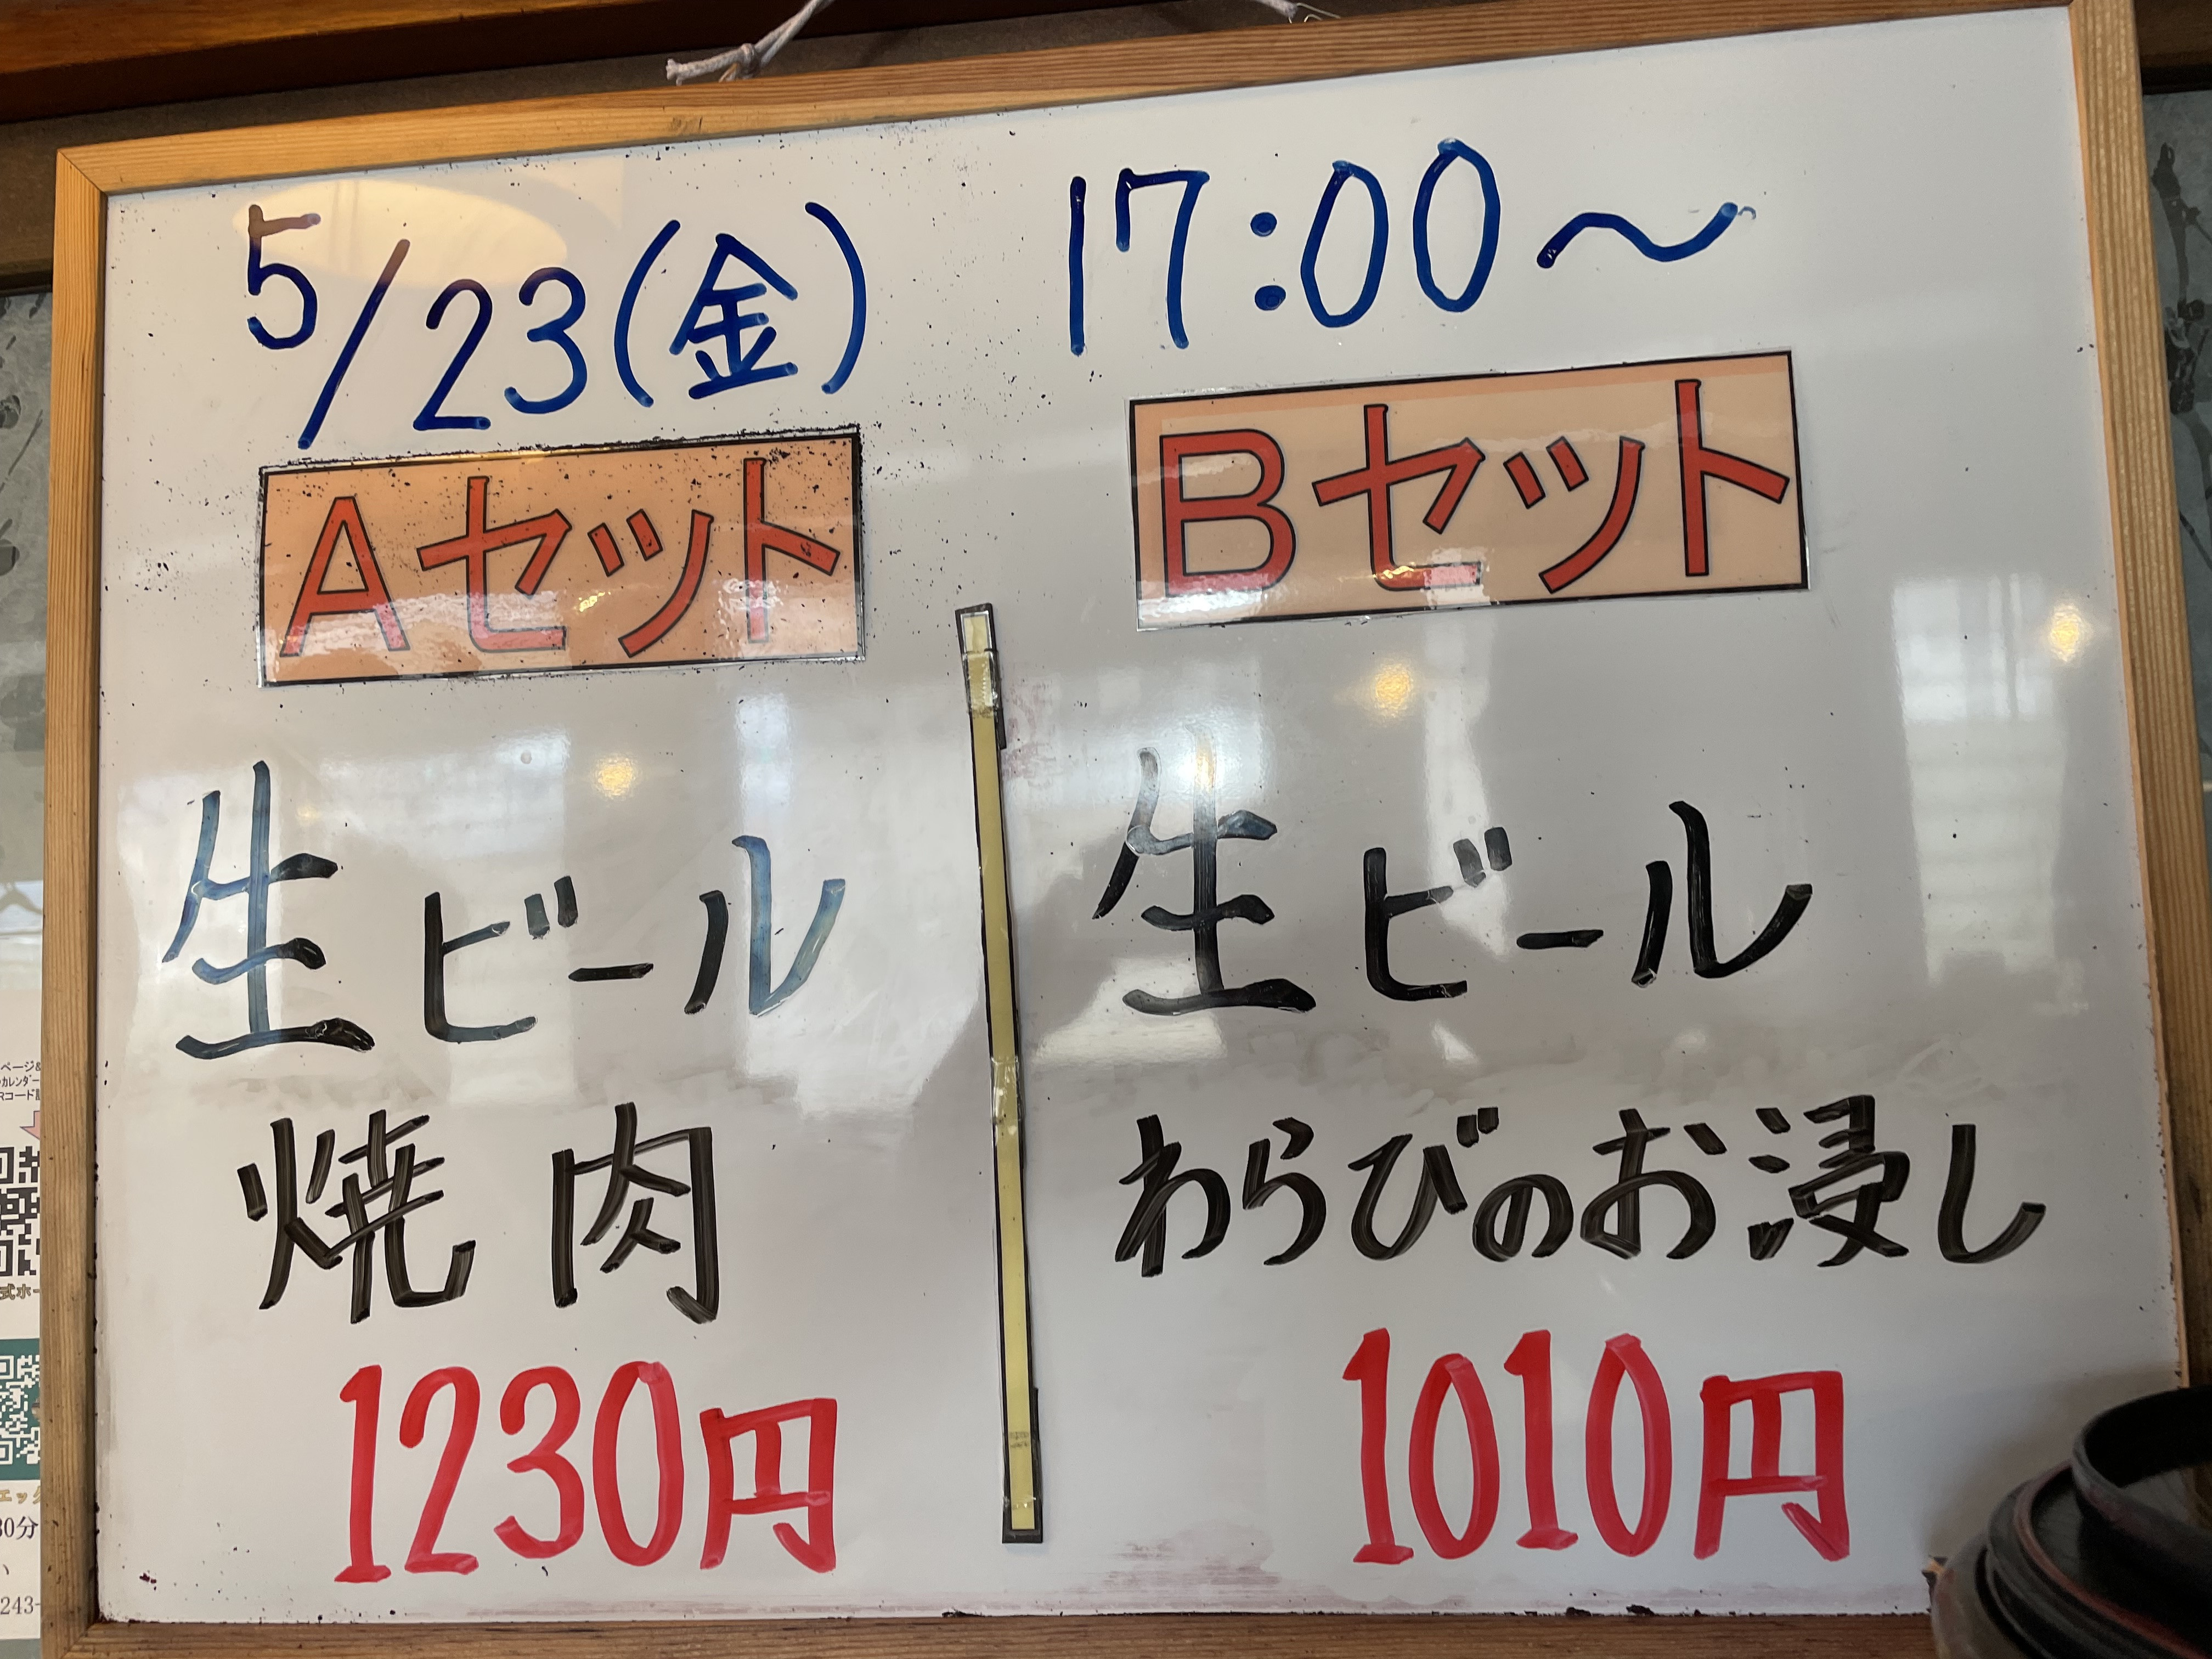 5/23(金) 17:00～
Aセット
生ビール
焼肉
1230円
Bセット
生ビール
わらびのお浸し
1010円
30分
243-